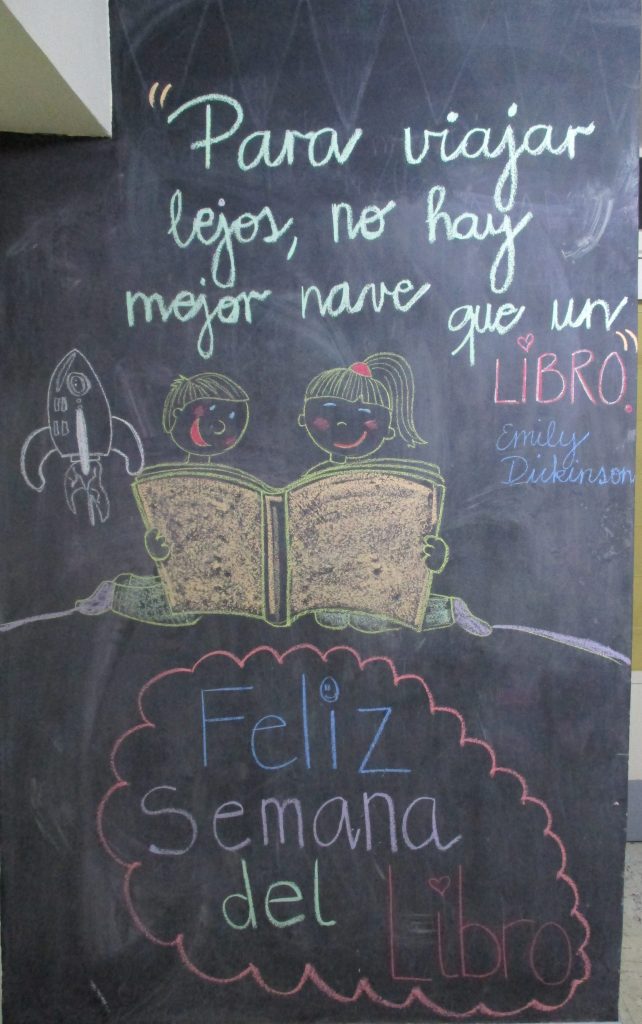 "Para viajar
lejos, no hay
mejor nave que un
LIBRO."
Emily
Dickinson
Feliz
Semana
del Libro